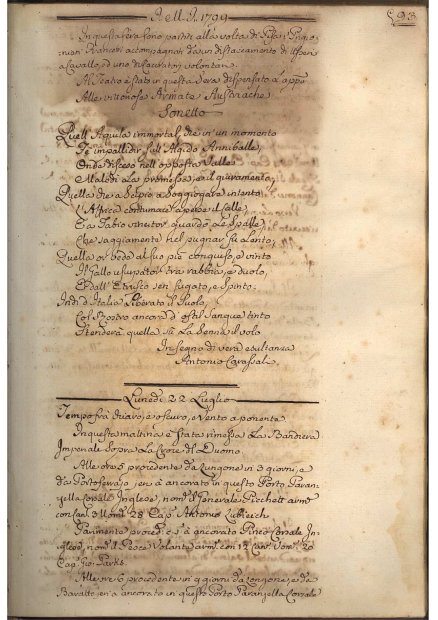 Nell A. 1799
593
In questa sera sono partiti alla volta di Pisa i Prigio-
nieri Francesi accompagnati da un distaccamento di Usseri
a Cavallo, ed uno di Cacciatori volontari
Al Teatro è stato in questa sera dispensato l'appo
Alle vittoriose Armate Austriache
Sonetto
Quell'Aquila immortal, che in un momento
Fe impallidir sull'Algido Anniballe,
Onde disceso nell'opposta Valle
Maledì la promessa, e il giuramento,
Quella che a Scipio a soggiogare intento
L'Affrica contumace aperse il Calle,
E a Fabio vincitor guardò le Spalle,
Che saggiamente nel pugnar fu lento;
Quella or vede al suo piè conquiso, e vinto
Il Gallo usurpator tra rabbia, e duolo,
E dall'Etrusco sen fugato, e spinto.
Indi d'Italia liberato il Suolo,
Col Rostro ancora d'ostil sangue tinto
Stenderà quella su la Senna il volo
In segno di vera esultanza
Antonio Carassali
Lunedì 22 Luglio
Tempo frà chiaro, e oscuro, e vento a ponente
In questa mattina è stata rimessa la Bandiera
Imperiale sopra la Croce del Duomo
Alle ore 5 procedente da Longone in 3 giorni, e
da Portoferajo, si è ancorato in questo Porto Paran-
zella Corsale Inglese, nom.ª il Generale
con 28 Cap. Antonio
Parimente proced. c. s. è ancorato Pinco Corsale In-
glese, nom. il Pesce Volante arm. con 12 Can. Uom. 20
Cap. Gio. Parks.
Alle ore 6 procedente in 9 giorni da Longone, e da
si è ancorato in questo Porto Paranzella Corsale